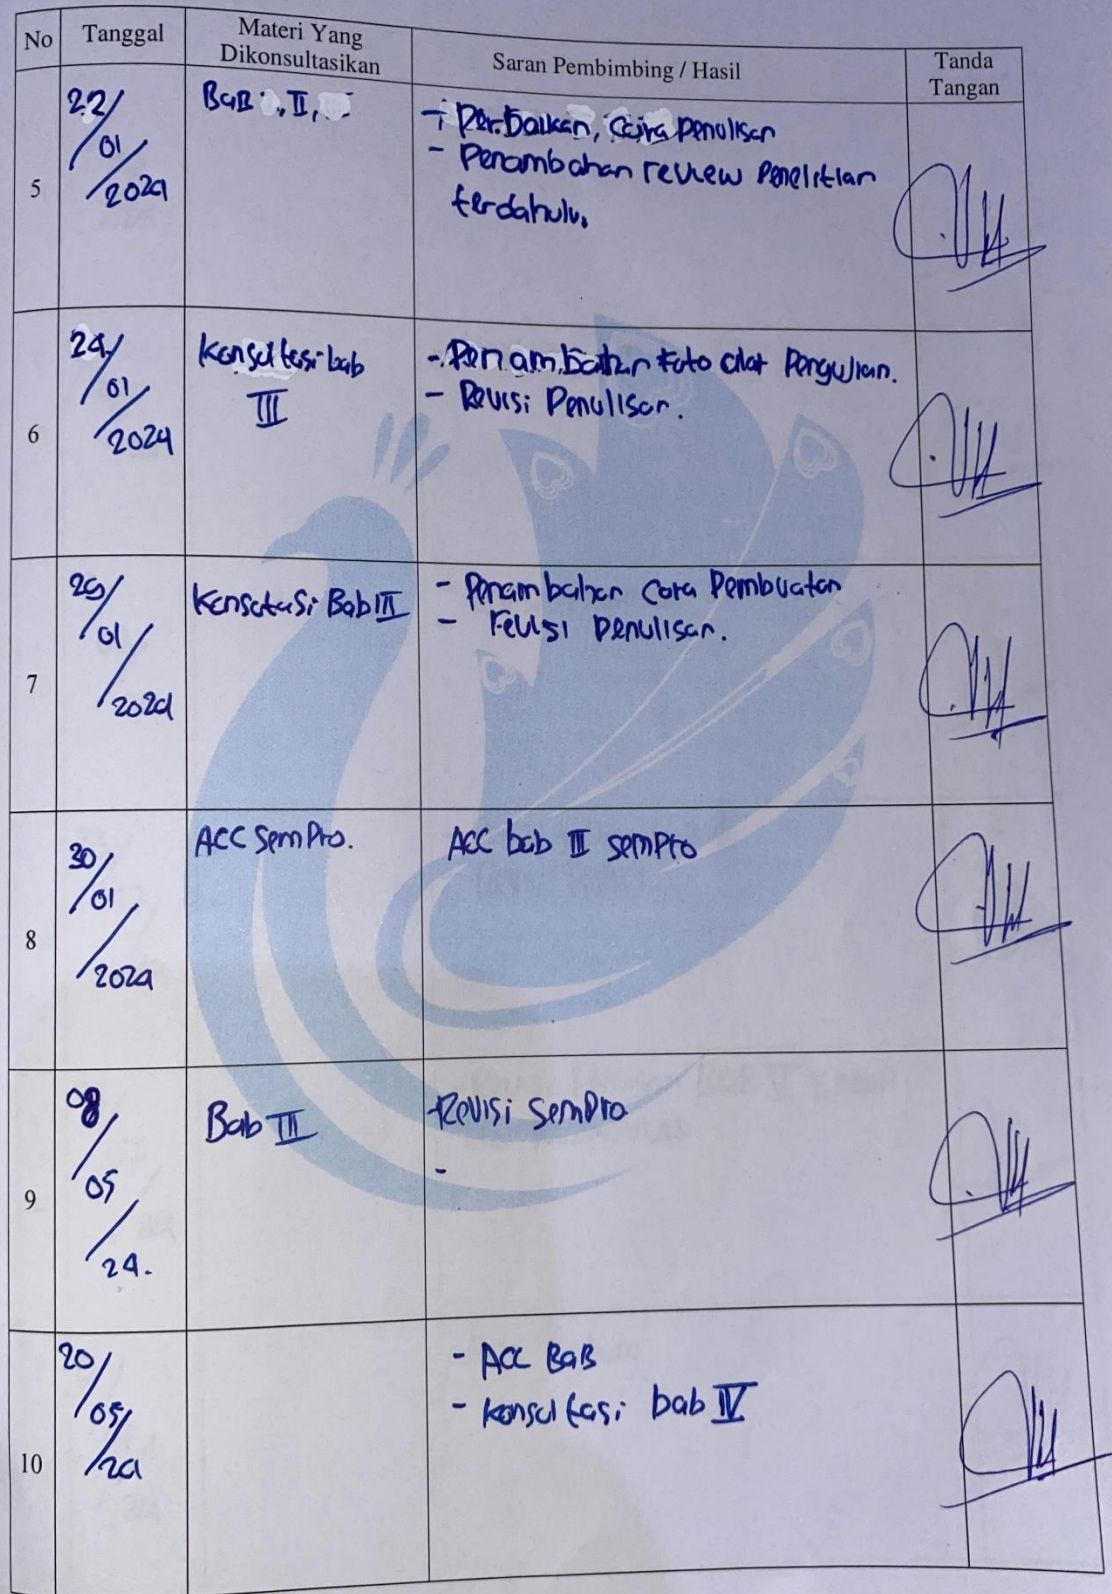 No Tanggal Materi Yang Dikonsultasikan Saran Pembimbing / Hasil Tanda Tangan
5 22/01/2024 BAB , II, - Perbaikan, Cara Penulisan
- Penambahan review Penelitian
terdahulu.
6 24/01/2024 Konsultasi bab III - Penambahan Foto alat Pengujian.
- Revisi Penulisan.
7 /01/2024 Konsultasi Bab III - Penambahan Cara Pembuatan
- Revisi Penulisan.
8 30/01/2024 ACC Sempro. ACC bab III sempro
9 08/05/24. Bab III Revisi Sempro
-
10 20/05/24 - ACC BAB
- Konsultasi bab IV